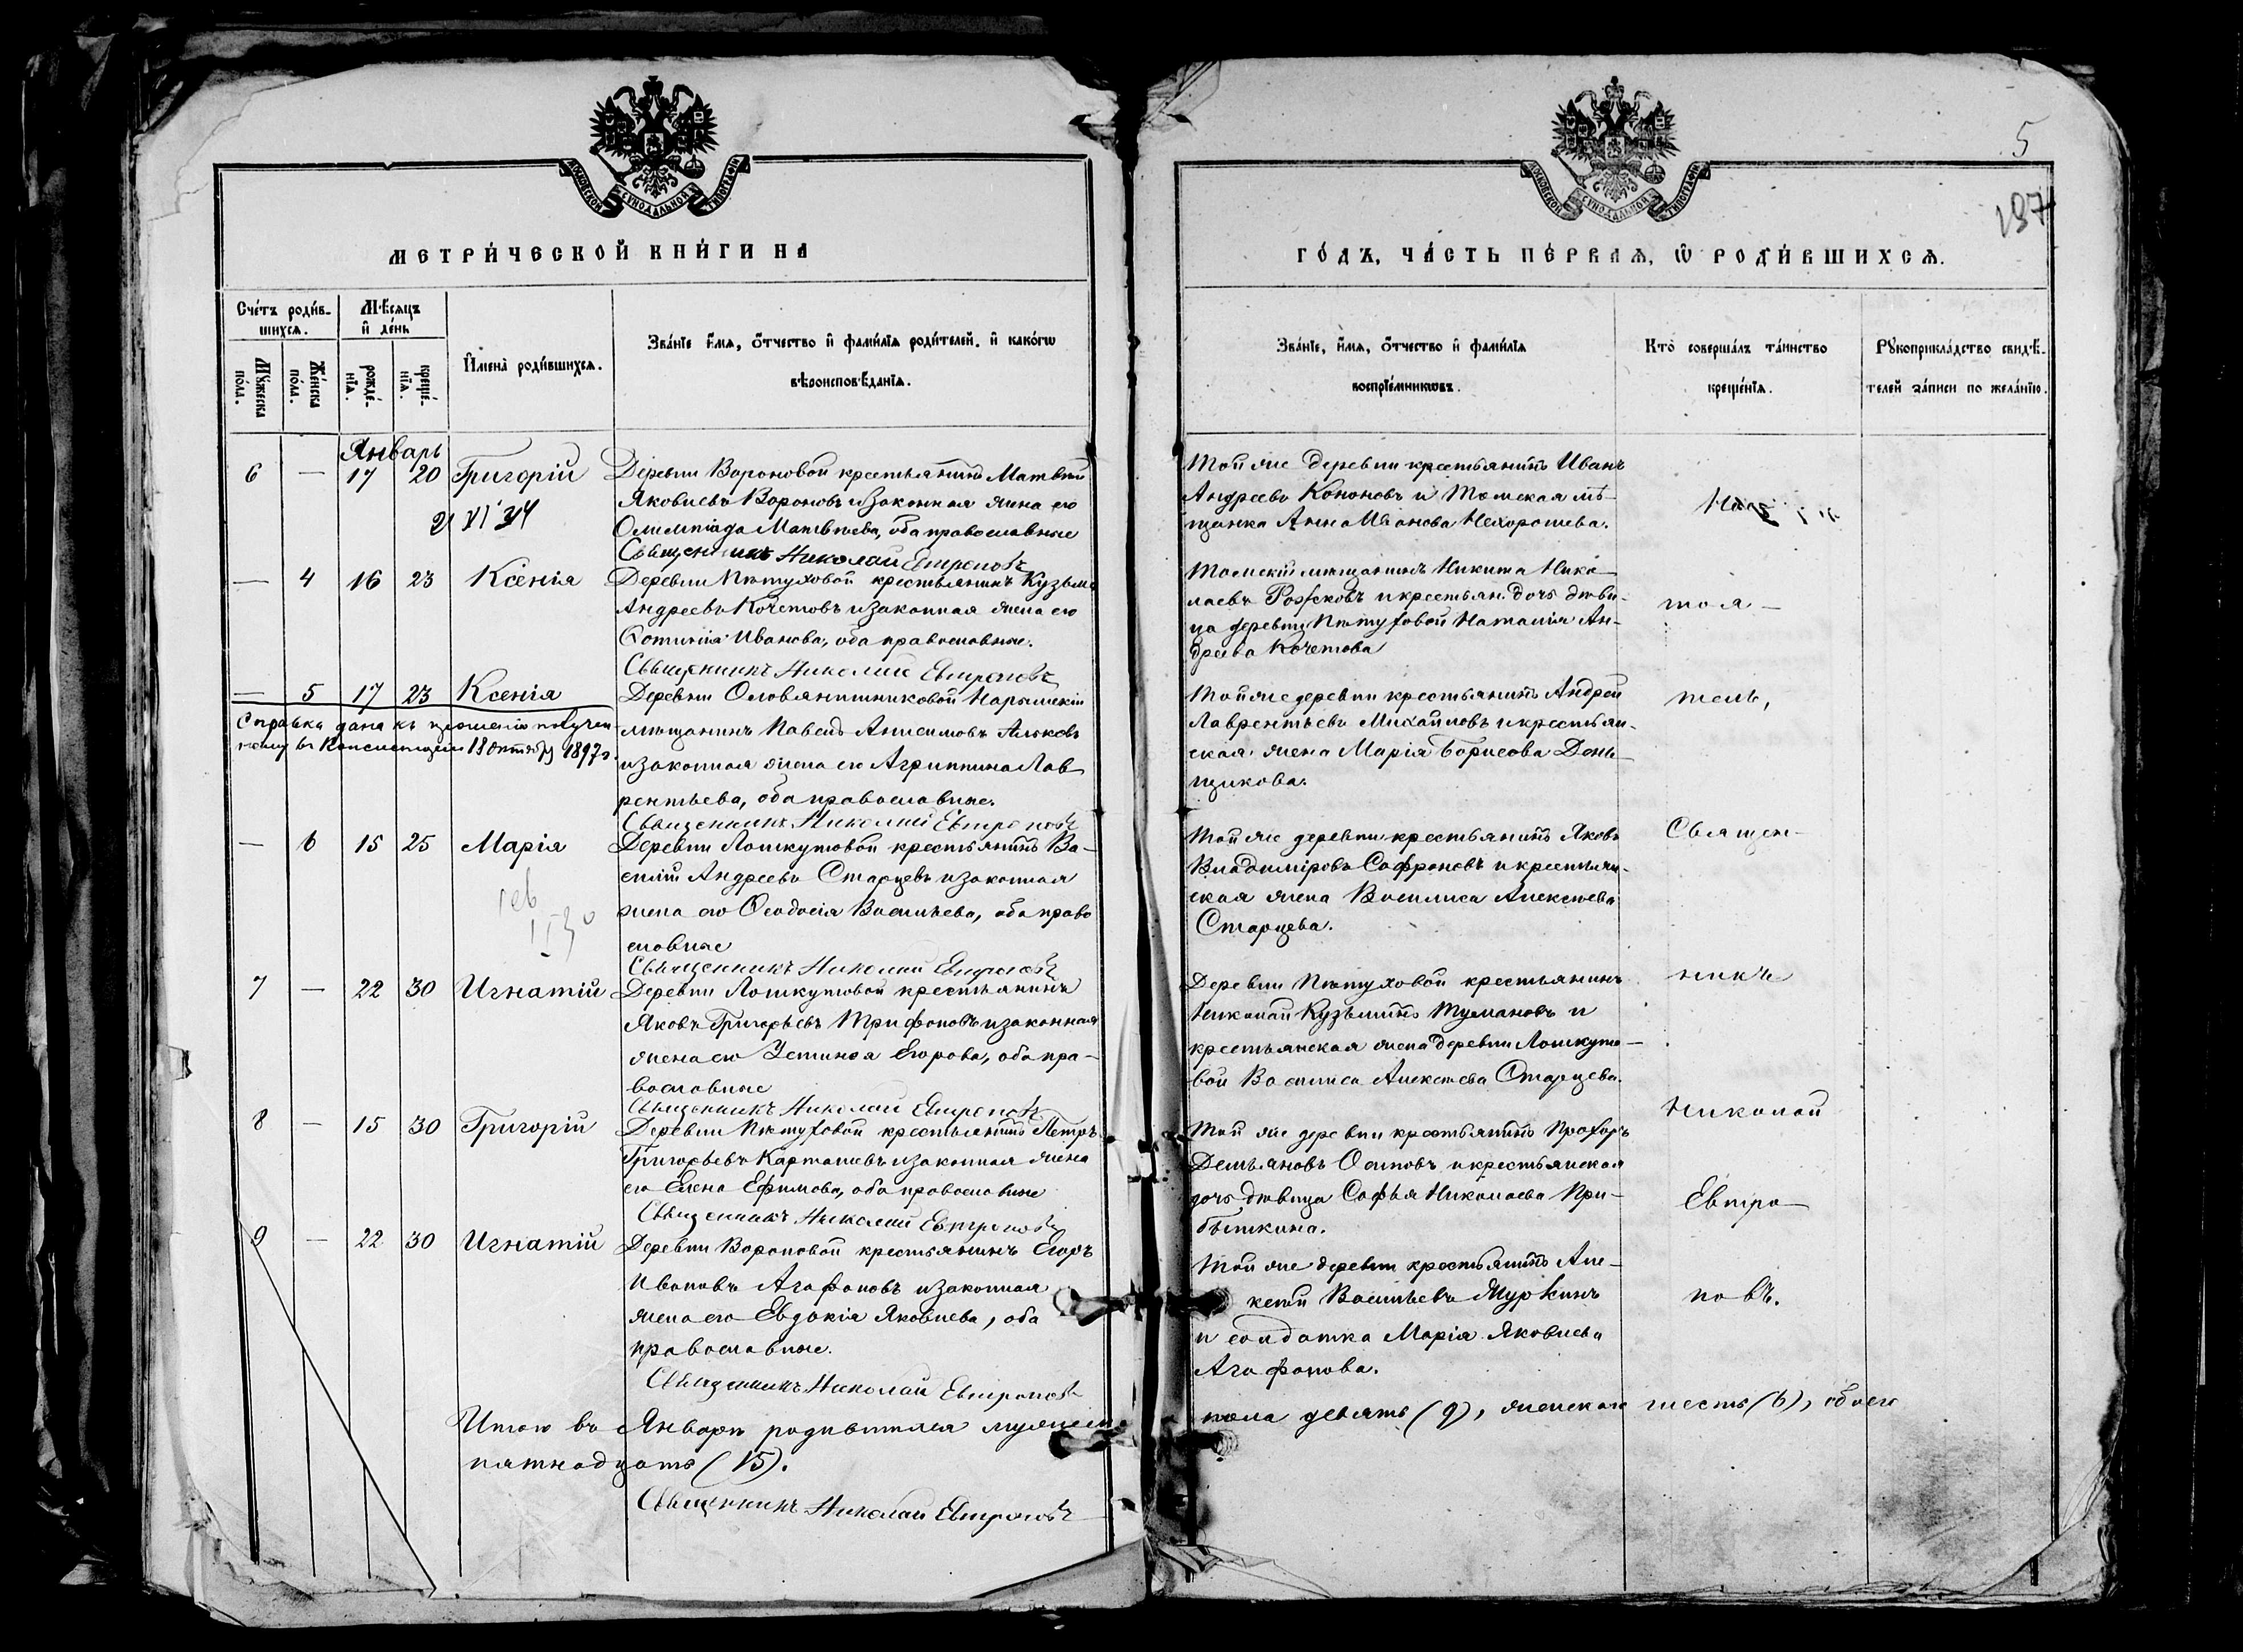 МОСКОВСКОЙ СѴНОДАЛЬНОЙ ТИПОГРАФІИ
МЕТРИ́ЧЕСКОЙ КНИ́ГИ НА
Сче́тъ роди́в-
шихсѧ.
Мѣ́сѧцъ
и де́нь
Имена̀ роди́вшихсѧ.
Зва́нїе, и́мѧ, ѻ́тчество и фами́лїѧ роди́телей, и како́гѡ
вѣроисповѣ́данїѧ.
Мꙋ́жеска по́ла.
Же́нска по́ла.
рожде́-
нїѧ.
креще́-
нїѧ.
Январь
6 — 17 20 Григорій Деревни Вороновой крестьянинъ Матвѣй
Яковлевъ Вороновъ и законная жена его
Олимпіада Матвѣева, оба православные
Священникъ Николай Евтроповъ
— 4 16 23 Ксенія Деревни Пѣтуховой крестьянинъ Кузьма
Андреевъ Кочетовъ и законная жена его
Фотинія Иванова, оба православные.
Священникъ Николай Евтроповъ
— 5 17 23 Ксенія Деревни Оловянишниковой Нарымскій
мѣщанинъ Павелъ Анисимовъ
и законная жена его Агриппина Лав
рентьева, оба православные.
Священникъ Николай Евтроповъ
Справка дана къ прошенію получен
ному въ Консисторіи 13 Октября 1897 г.
— 6 15 25 Марія Деревни Лошкутовой крестьянинъ Ва-
силій Андреевъ Старцевъ и законная
жена его Ѳеодосія Васильева, оба право
славные
Священникъ Николай Евтроповъ
7 — 22 30 Игнатій Деревни Лошкутовой крестьянинъ
Яковъ Григорьевъ Трифоновъ и законная
жена его Устинья Егорова, оба пра-
вославные
Священникъ Николай Евтроповъ
8 — 15 30 Григорій Деревни Пѣтуховой крестьянинъ Петръ
Григорьевъ Карташевъ и законная жена
его Елена Ефимова, оба православные
Священникъ Николай Евтроповъ
9 — 22 30 Игнатій Деревни Вороновой крестьянинъ Егоръ
Ивановъ Агафоновъ и законная
жена его Евдокія Яковлева, оба
православные.
Священникъ Николай Евтроповъ
Итого въ Январѣ родившихся мужеска
пятнадцать (15).
Священникъ Николай Евтроповъ
5
197
МОСКОВСКОЙ СѴНОДАЛЬНОЙ ТИПОГРАФІИ
ГО́ДЪ, ЧА́СТЬ ПЕ́РВАѦ, Ѡ РОДИ́ВШИХСѦ.
Зва́нїе, и́мѧ, ѻ́тчество и фами́лїѧ
воспрїе́мникѡвъ.
Кто̀ соверша́лъ та́инство
креще́нїѧ.
Рꙋкоприкла́дство свидѣ́-
телей за́писи по жела́нїю.
Той же деревни крестьянинъ Иванъ
Андреевъ Кононовъ и Томская мѣ-
щанка Анна Иванова Нехорошева.
Томскій мѣщанинъ Никита Нико-
лаевъ и крестьян. дочь дѣви-
ца деревни Пѣтуховой Наталія Ан-
дреева Кочетова
тоя-
Той же деревни крестьянинъ Андрей
Лаврентьевъ Михайловъ и крестьян-
ская жена Марія Борисова День-
щикова.
тель,
Той же деревни крестьянинъ Яковъ
Владиміровъ Софроновъ и крестьян-
ская жена Василиса Алексѣева
Старцева.
Священ-
Деревни Пѣтуховой крестьянинъ
Николай Кузьминъ Тумановъ и
крестьянская жена деревни Лошкуто-
вой Василиса Алексѣева Старцева.
никъ
Той же деревни крестьянинъ Прохоръ
Демьяновъ Осиповъ и крестьянская
дочь дѣвица Софья Николаева При-
быткина.
Николай
Евтро-
Той же деревни крестьянинъ Але-
ксѣй Васильевъ Муркинъ
и солдатка Марія Яковлева
Агафонова.
повъ.
пола девять (9), женскаго шесть (6), обоего